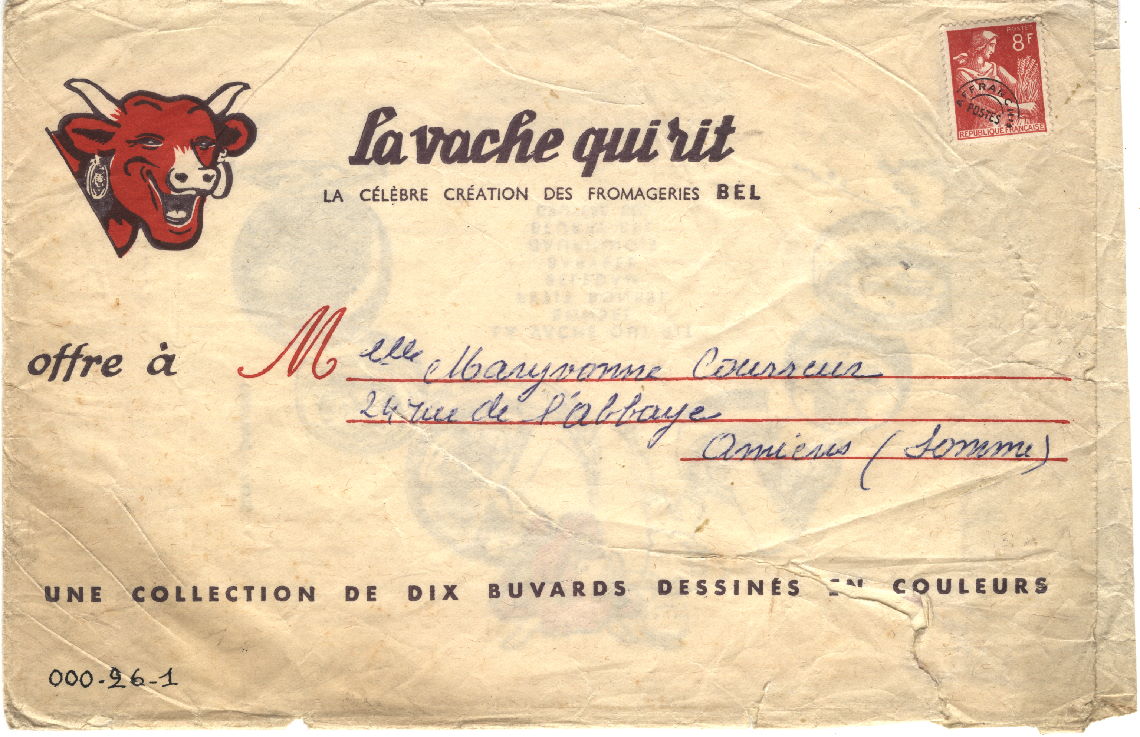 POSTES
8F
AFFRANCHts
POSTES
RÉPUBLIQUE FRANÇAISE
La vache qui rit
LA CÉLÈBRE CRÉATION DES FROMAGERIES BEL
offre à Melle Maryvonne Courreur
24 rue de l'abbaye
Amiens (Somme)
UNE COLLECTION DE DIX BUVARDS DESSINÉS EN COULEURS
000-26-1